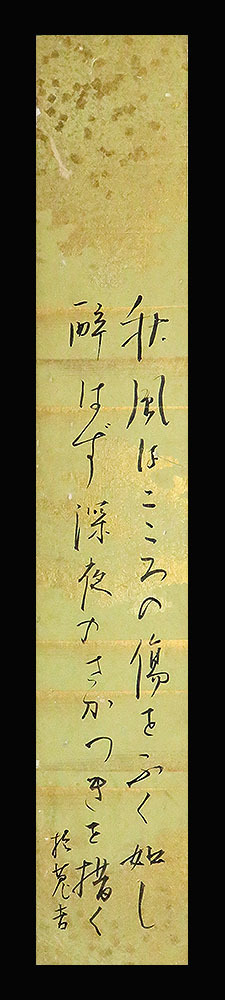 秋風はこころの傷をふく如し
酔はず深夜のさかつきを措く
於菟吉